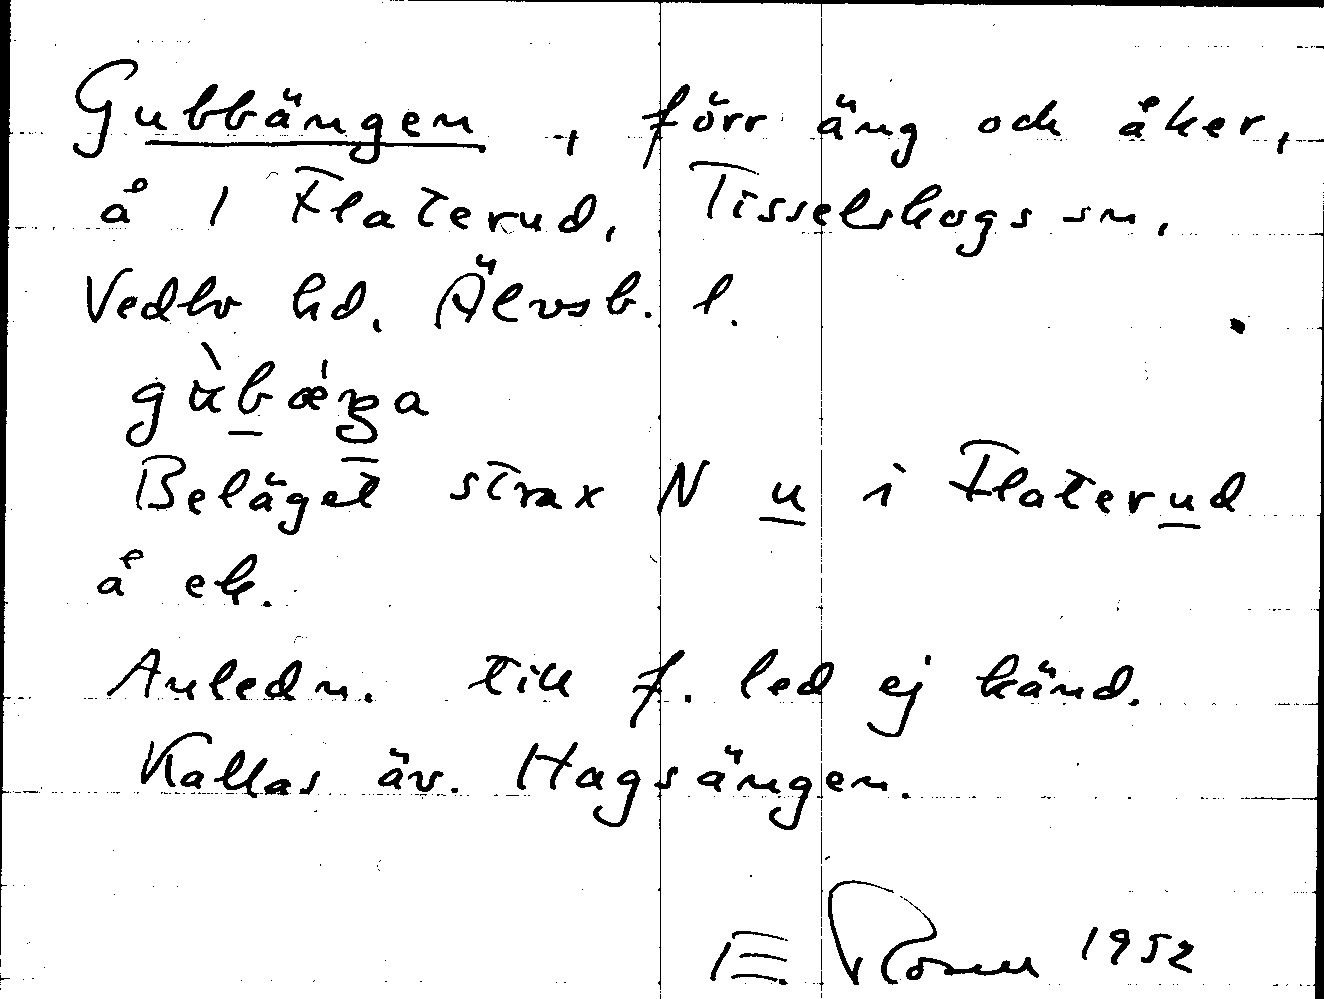 Gubbängen, förr äng och åker,
å 1 Flaterud, Tisselskogs sn,
Vedbo hd, Älvsb. l.
gùbǽŋa
Beläget strax N u i Flaterud
å ek.
Anledn. till f. led ej känd.
Kallas äv. Hagsängen.
E. Rosell 1952